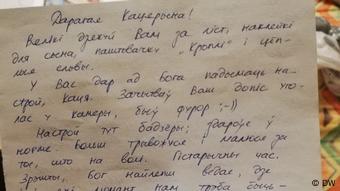 Дарагая Кацярына!
Вялікі дзякуй Вам за ліст, наклейкі
для сына, паштоўкі "Кроплі" і цёп-
лыя словы.
У Вас дар ад Бога падымаць на-
строй, Каця. Зачытваў Ваш допіс уго-
лас у камеры, быў фурор ;-))
Настрой тут бадзёры; здароўе ў
норме. Больш трывожуся і малюся за
тое, што на волі. Гістарычны час.
Зрэшты, Бог найлепш ведае, дзе
нам трэба быць
© DW